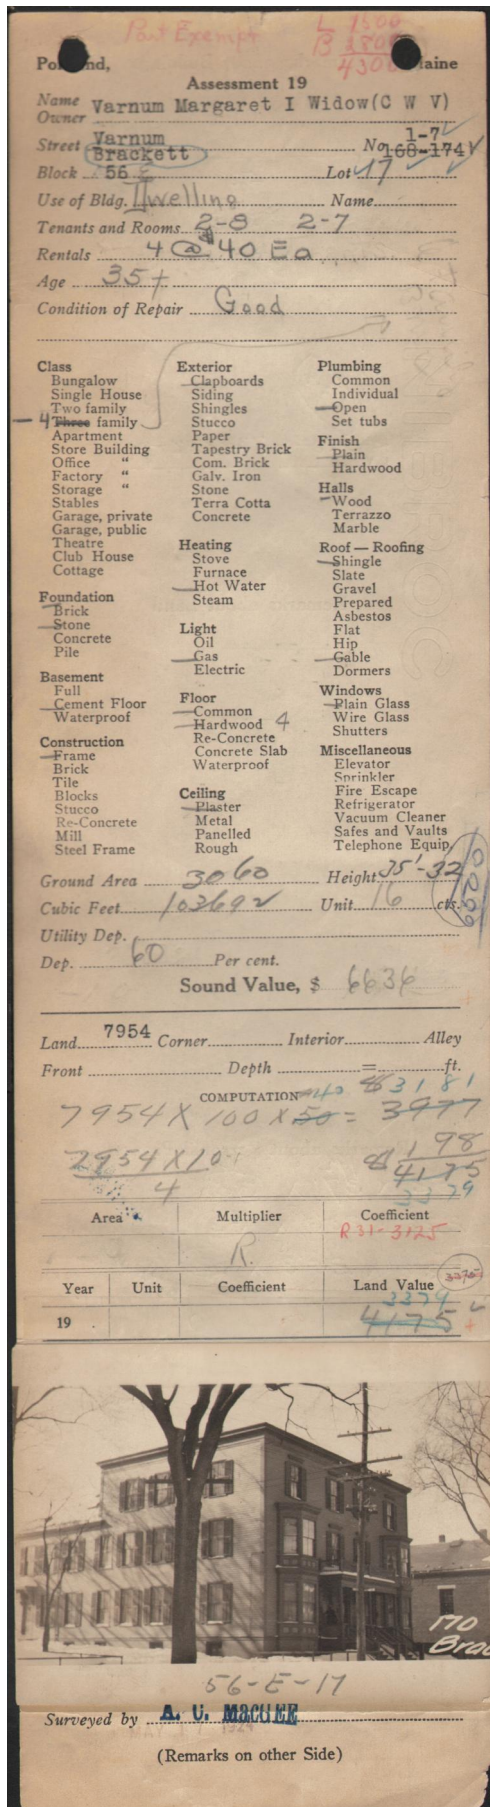 Part Exempt
L 1500
B 2800
4300
Portland, Maine
Assessment 19
Name
Owner Varnum Margaret I Widow(C W V)
Street Varnum No. 1-7
Brackett 168-174
Block 56 E Lot 17
Use of Bldg. Dwelling Name
Tenants and Rooms 2-8 2-7
Rentals 4 @ 40 Ea
Age 35+
Condition of Repair Good
Class
Bungalow
Single House
Two family
4 Three family
Apartment
Store Building
Office "
Factory "
Storage "
Stables
Garage, private
Garage, public
Theatre
Club House
Cottage
Foundation
Brick
Stone
Concrete
Pile
Basement
Full
Cement Floor
Waterproof
Construction
Frame
Brick
Tile
Blocks
Stucco
Re-Concrete
Mill
Steel Frame
Exterior
Clapboards
Siding
Shingles
Stucco
Paper
Tapestry Brick
Com. Brick
Galv. Iron
Stone
Terra Cotta
Concrete
Heating
Stove
Furnace
Hot Water
Steam
Light
Oil
Gas
Electric
Floor
Common
Hardwood 4
Re-Concrete
Concrete Slab
Waterproof
Ceiling
Plaster
Metal
Panelled
Rough
Plumbing
Common
Individual
Open
Set tubs
Finish
Plain
Hardwood
Halls
Wood
Terrazzo
Marble
Roof — Roofing
Shingle
Slate
Gravel
Prepared
Asbestos
Flat
Hip
Gable
Dormers
Windows
Plain Glass
Wire Glass
Shutters
Miscellaneous
Elevator
Sprinkler
Fire Escape
Refrigerator
Vacuum Cleaner
Safes and Vaults
Telephone Equip.
Ground Area 3060 Height 35'-32
Cubic Feet 103692 Unit 16 cts.
Utility Dep.
Dep. 60 Per cent.
Sound Value, $ 6636
Land 7954 Corner Interior Alley
Front Depth = ft.
COMPUTATION 40 $3181
7954 X 100 X 50 = 3977
7954 X 10 198
4 $4175
3379
Area Multiplier Coefficient
R31-3125
R.
Year Unit Coefficient Land Value 3375
3379
19 4175
170
Brac
56-E-17
Surveyed by A. C. MacGEE
1924
(Remarks on other Side)